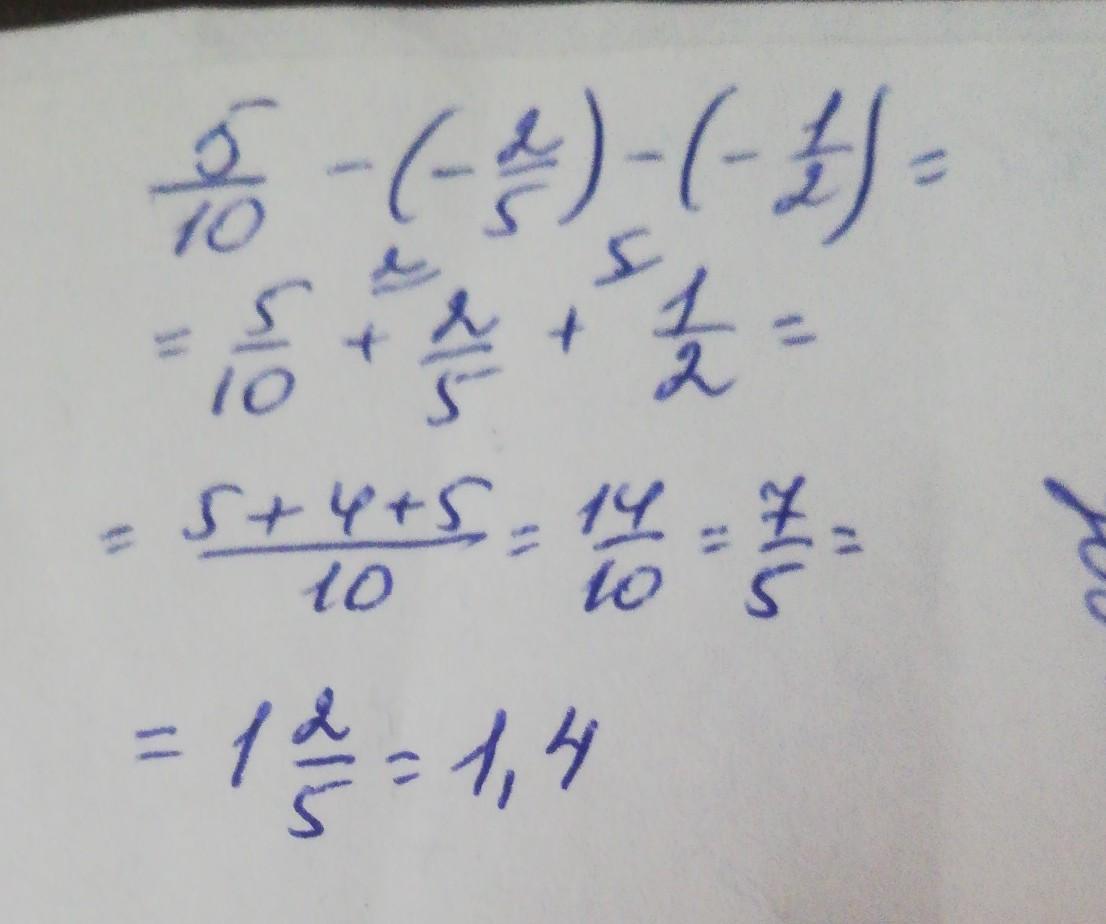 5/10 - (- 2/5) - (- 1/2) =
= 5/10 + ² 2/5 + ⁵ 1/2 =
= (5 + 4 + 5)/10 = 14/10 = 7/5 =
= 1 2/5 = 1,4